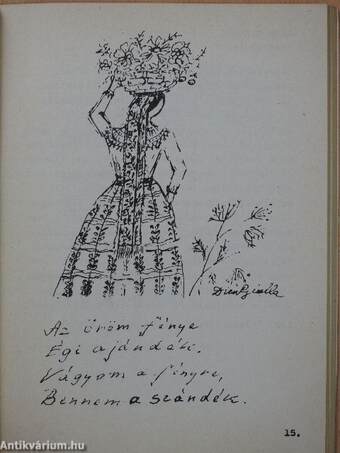 Dién Gizella
Az öröm fénye
Égi ajándék.
Vágyam a fényre,
Bennem a szándék.
15.
Antikvárium.hu